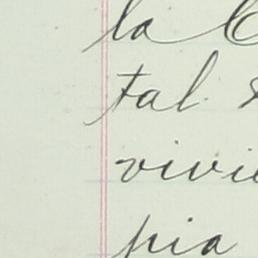 la
tal
vivi
pia